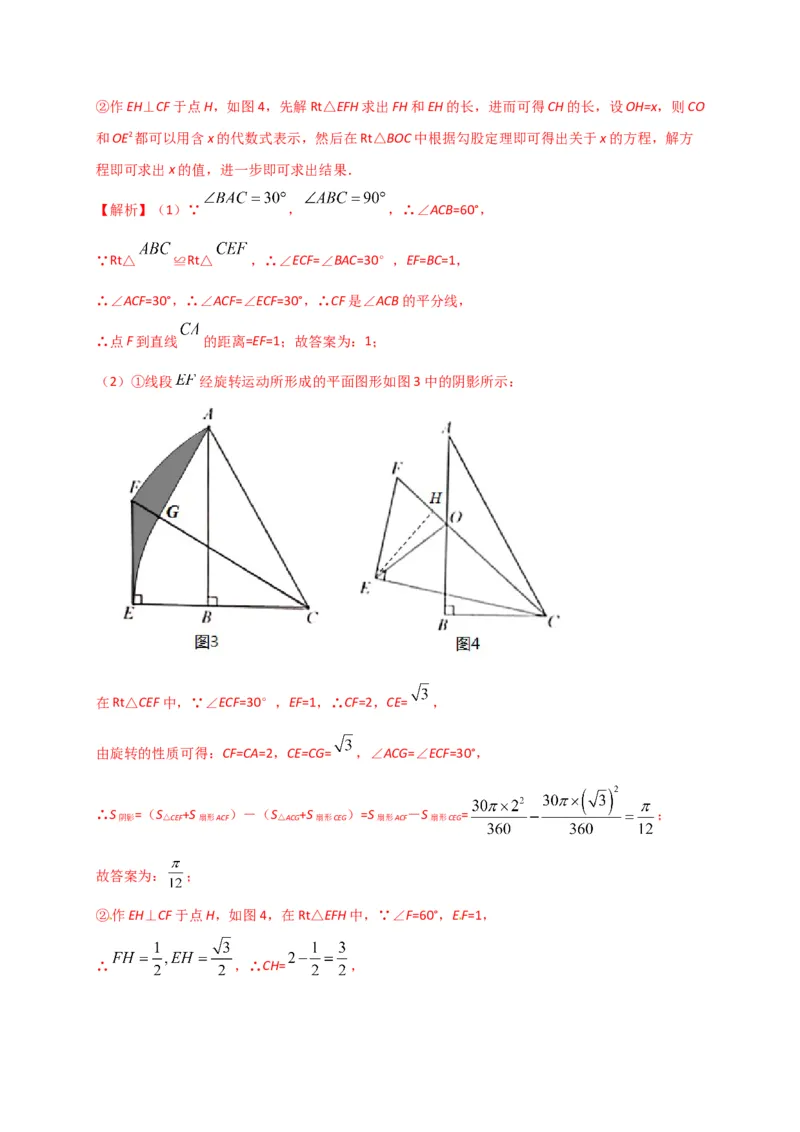 ②作EH⊥CF于点H，如图4，先解Rt△EFH求出FH和EH的长，进而可得CH的长，设OH=x，则CO
和OE²都可以用含x的代数式表示，然后在Rt△BOC中根据勾股定理即可得出关于x的方程，解方
程即可求出x的值，进一步即可求出结果．
【解析】（1）∵∠BAC = 30°，∠ABC = 90°，∴∠ACB=60°，
∵Rt△ABC≌Rt△CEF，∴∠ECF=∠BAC=30°，EF=BC=1，
∴∠ACF=30°，∴∠ACF=∠ECF=30°，∴CF是∠ACB的平分线，
∴点F到直线CA的距离=EF=1；故答案为：1；
（2）①线段EF经旋转运动所形成的平面图形如图3中的阴影所示：
A
F
G
E
B
C
图3
A
F
H
O
E
B
C
图4
在Rt△CEF中，∵∠ECF=30°，EF=1，∴CF=2，CE=√3，
由旋转的性质可得：CF=CA=2，CE=CG=√3，∠ACG=∠ECF=30°，
∴S阴影=（S△CEF+S扇形ACF）－（S△ACG+S扇形CEG）=S扇形ACF－S扇形CEG=30π×2²/360 − 30π×(√3)²/360 = π/12；
故答案为：π/12；
②作EH⊥CF于点H，如图4，在Rt△EFH中，∵∠F=60°，EF=1，
∴FH = 1/2, EH = √3/2，∴CH=2−1/2=3/2，